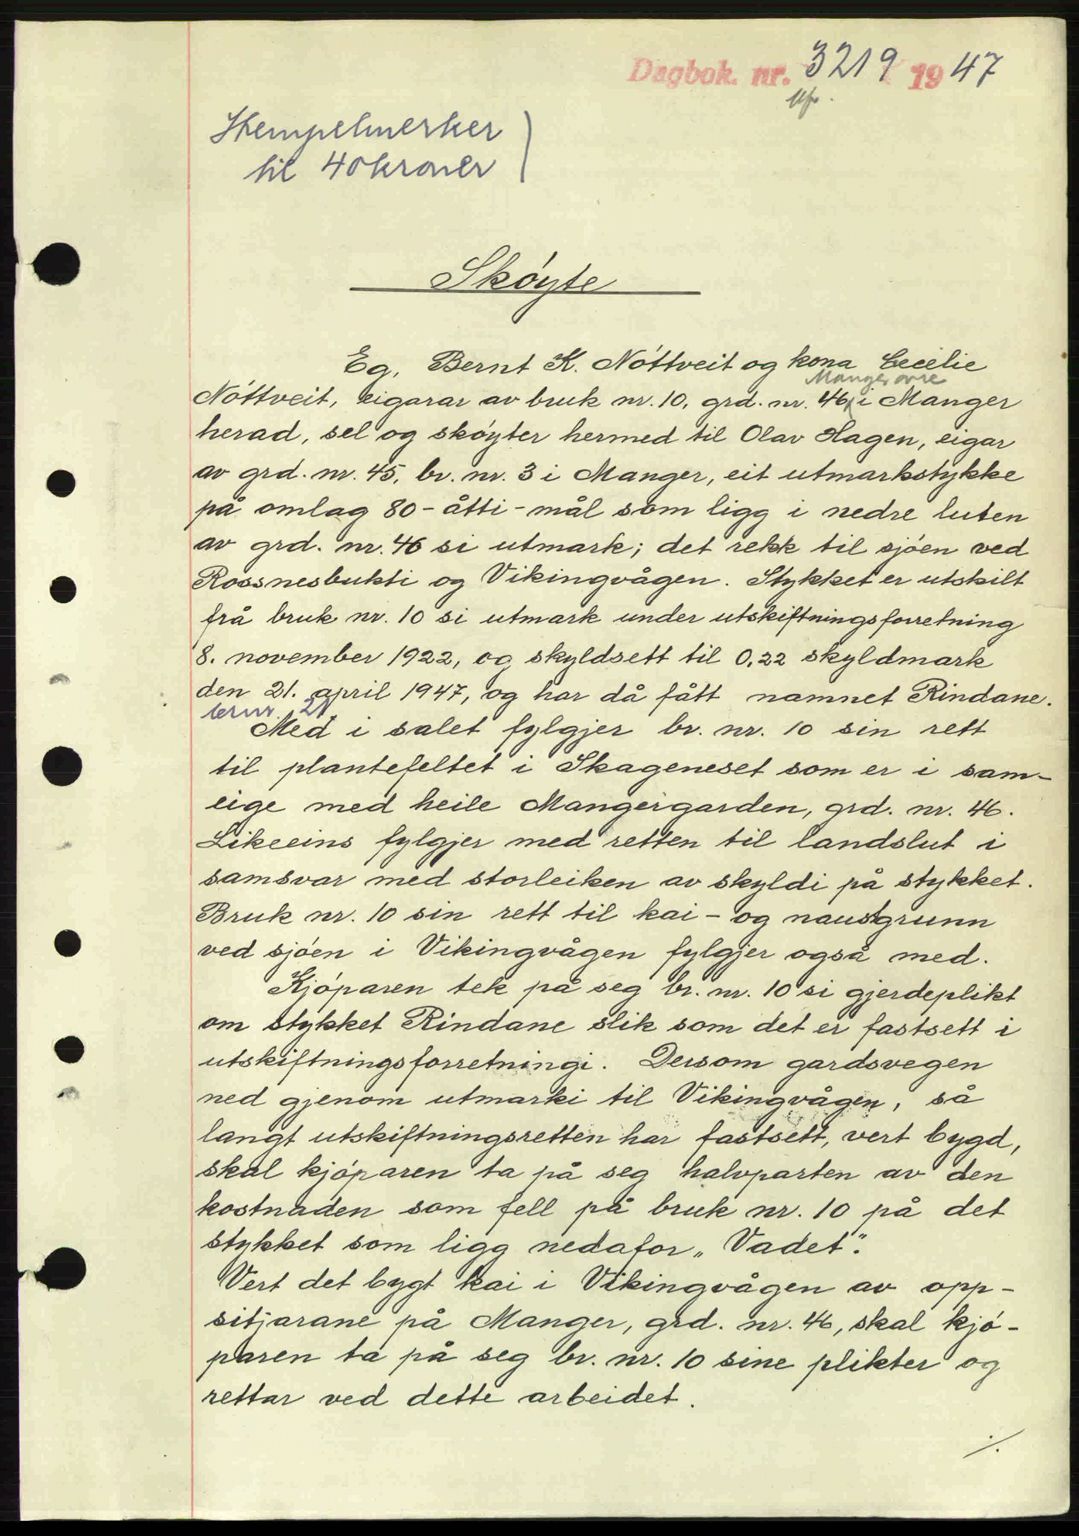 Dagbok. nr. 3219 1947
Stempelmerker
til 40 kroner
Skóyte
Eg, Bernt K. Nóttveit og kona Cecilie
Manger øvre
Nóttveit, eigarar av bruk nr. 10, grd. nr. 46 i Manger
herad, sel og skóyter hermed til Olav Hagen, eigar
av grd. nr. 45, br. nr. 3 i Manger, eit utmarkstykke
på omlag 80 - åtti - mål som ligg i nedre luten
av grd. nr. 46 si utmark; det rekk til sjóen ved
Rossnesbukti og Vikingvågen. Stykket er utskilt
frå bruk nr. 10 si utmark under utskiftningsforretning
8. november 1922, og skyldsett til 0,22 skyldmark
den 21. april 1947, og har då fått namnet Rindane.
br nr 28
Med i salet fylgjer br. nr. 10 sin rett
til plantefeltet i Skageneset som er i sam-
eige med heile Mangergarden, grd. nr. 46.
Likeeins fylgjer med retten til landslut i
samsvar med storleiken av skyldi på stykket.
Bruk nr. 10 sin rett til kai - og naustgrunn
ved sjóen i Vikingvågen fylgjer også med.
Kjóparen tek på seg br. nr. 10 si gjerdeplikt
om stykket Rindane slik som det er fastsett i
utskiftningsforretningi. Dersom gardsvegen
ned gjenom utmarki til Vikingvågen, så
langt utskiftningsretten har fastsett, vert bygd,
skal kjóparen ta på seg halvparten av den
kostnaden som fell på bruk nr. 10 på det
stykket som ligg nedafor „Vadet".
Vert det bygt kai i Vikingvågen av opp-
sitjarane på Manger, grd. nr. 46, skal kjó-
paren ta på seg br. nr. 10 sine plikter og
rettar ved dette arbeidet.
./.